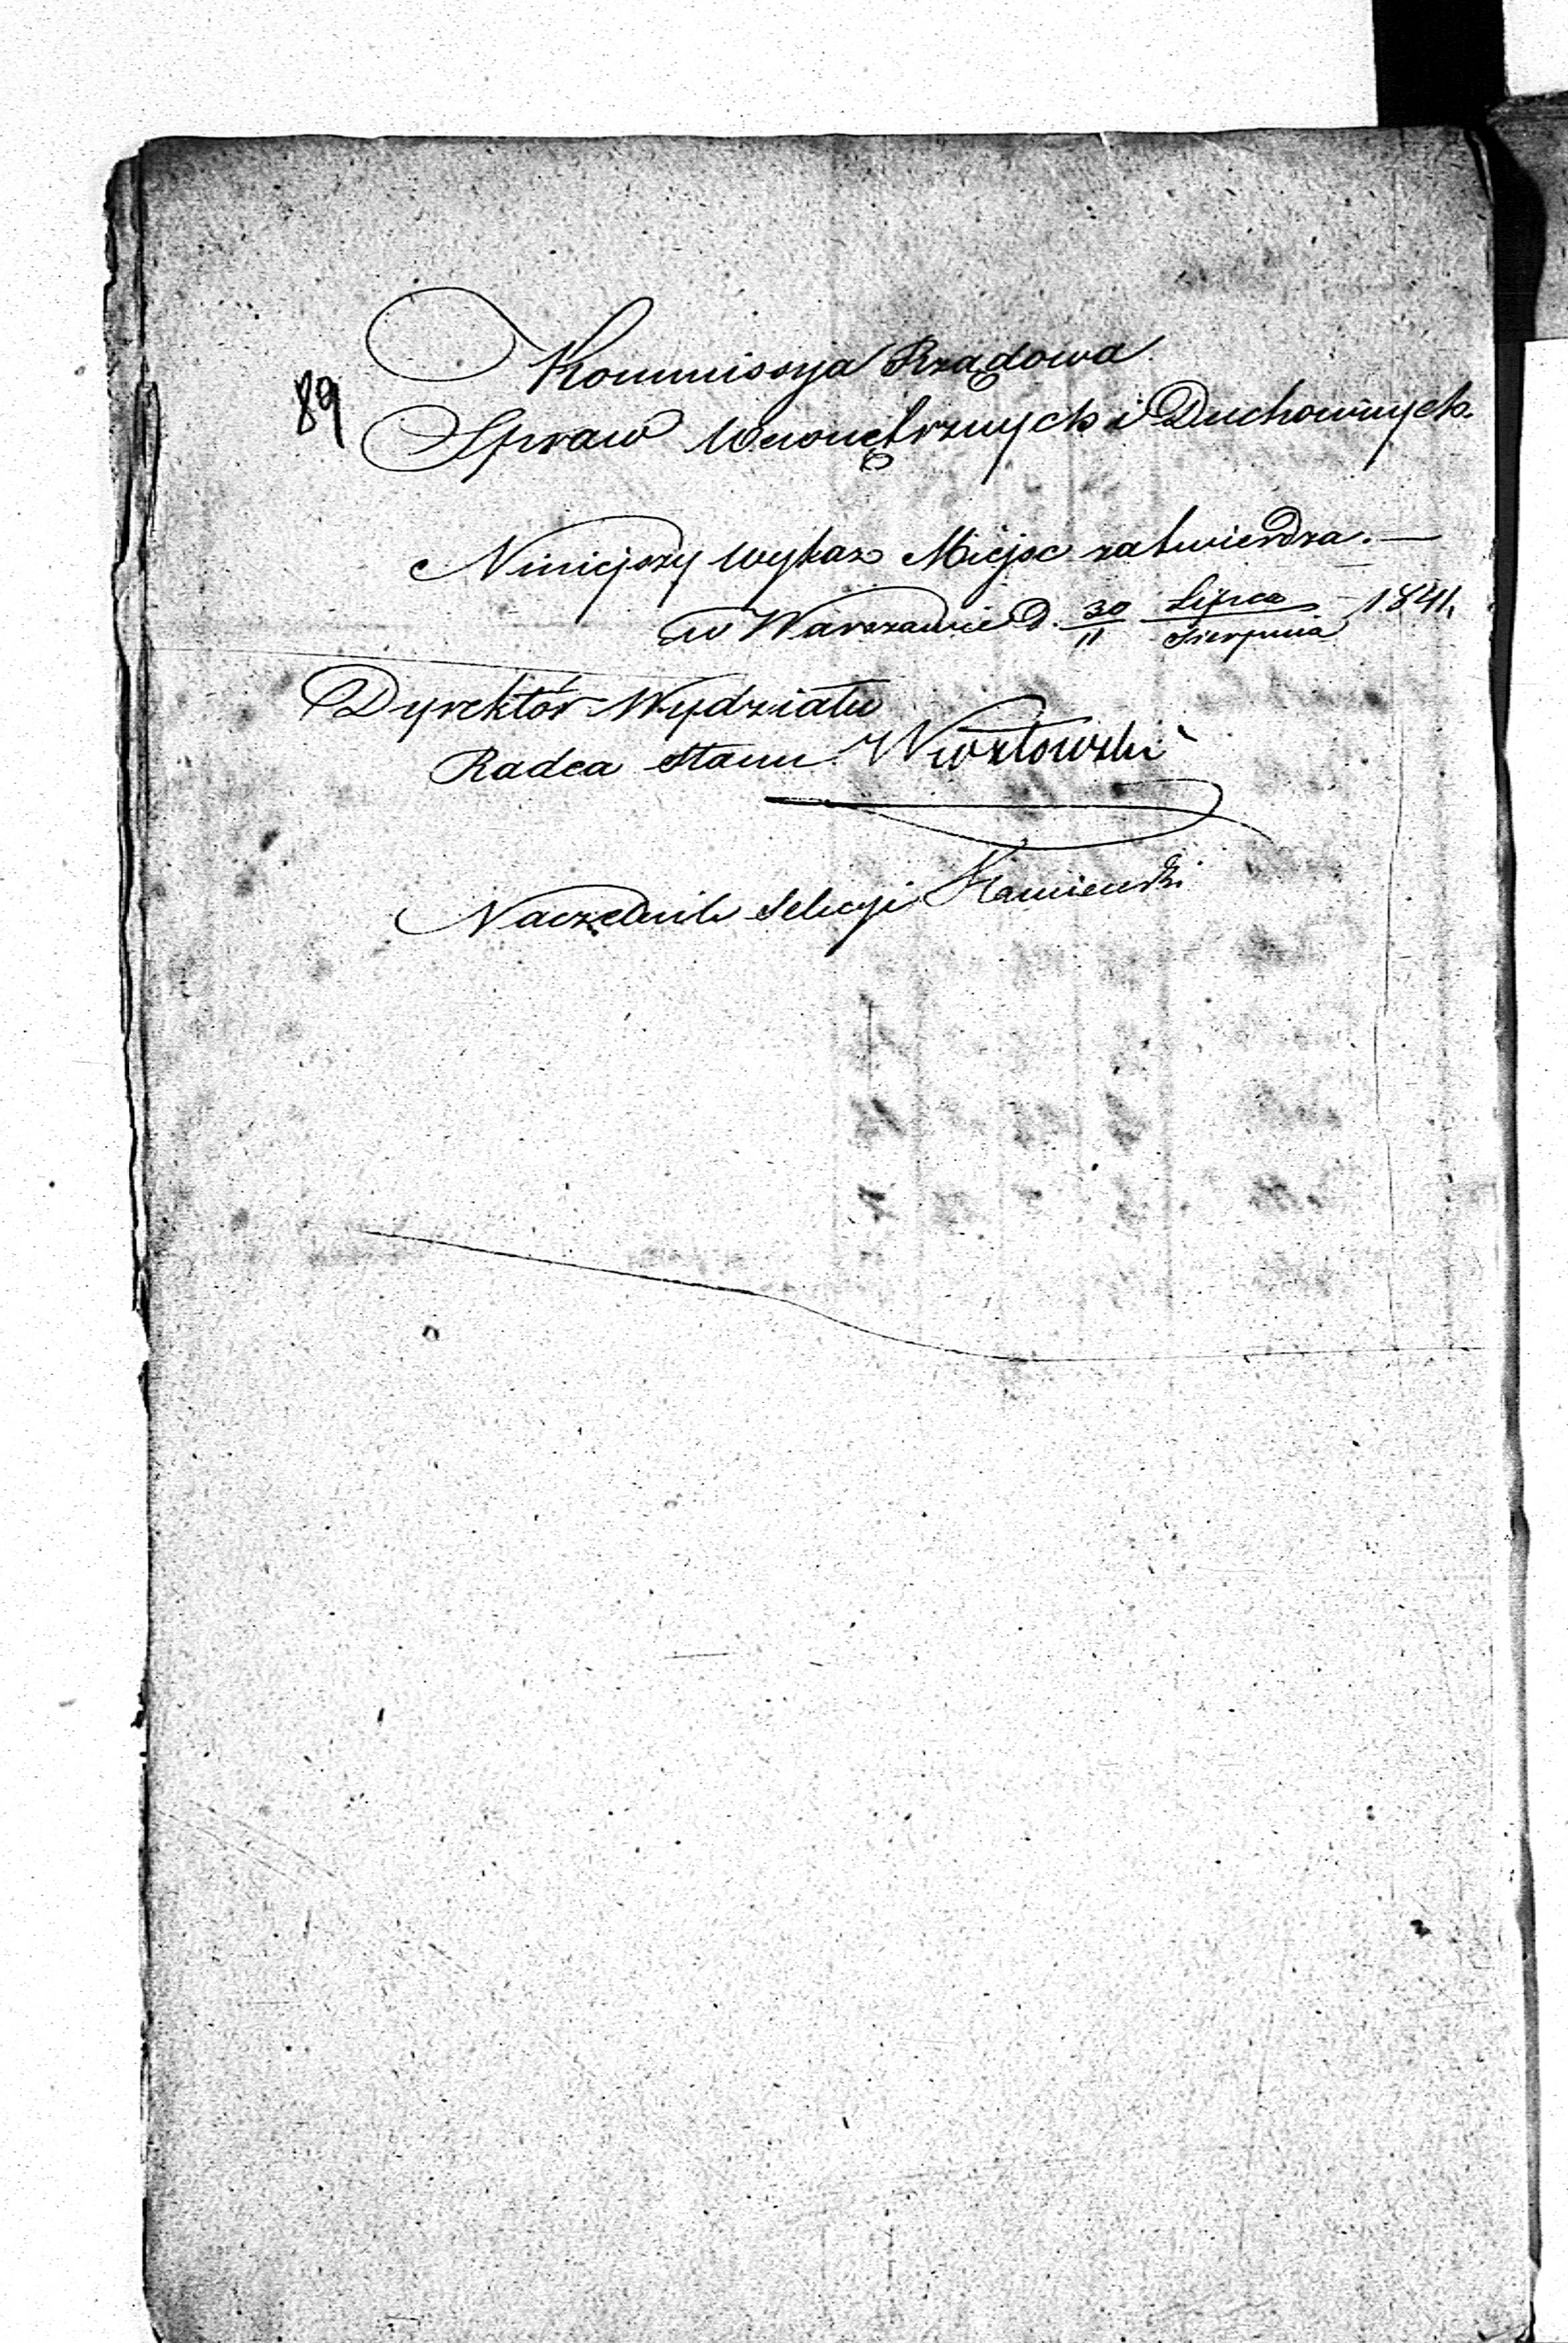 89
Kommissya Rządowa
Spraw Wewnętrznych i Duchownych
Niniejszy Wykaz Miejsc zatwierdza. —
w Warszawie d. 30/11 Lipca/Sierpnia 1841.
Dyrektór Wydziału
Radca Stanu
Naczelnik Sekcyi Kamieński